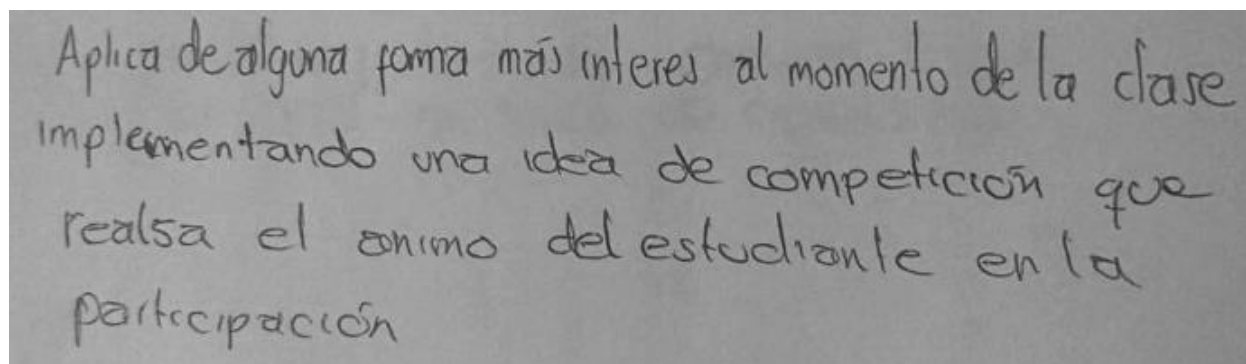 Aplica de alguna forma más interes al momento de la clase
implementando una idea de competición que
realsa el animo del estudiante en la
participación